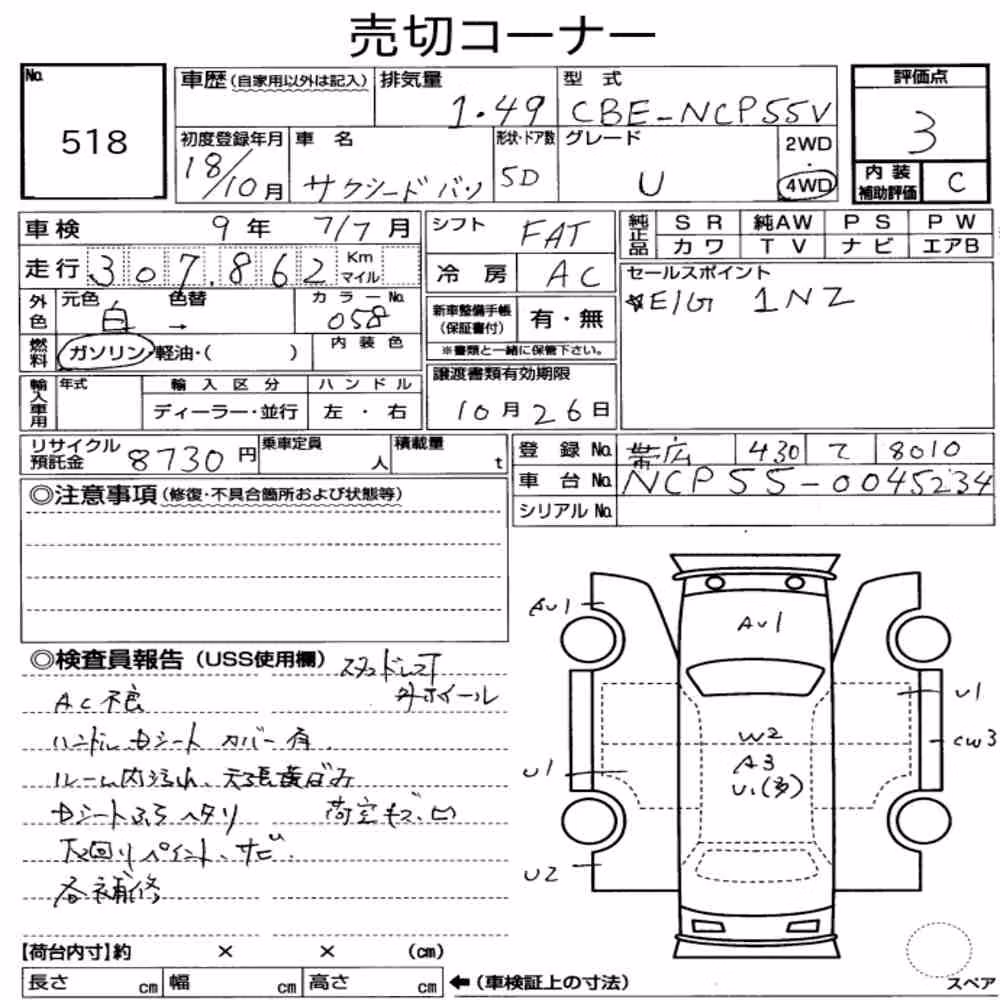 売切コーナー
No. 518
車歴(自家用以外は記入) 排気量 1.49 型式 CBE-NCP55V
評価点 3
初度登録年月 18/10月 車名 サクシードバン 形状・ドア数 5D グレード U 2WD 4WD
内装補助評価 C
車検 9年 7/7月
シフト FAT
純正品 SR 純AW PS PW
カワ TV ナビ エアB
走行 307,862 Km マイル
冷房 AC
セールスポイント
☆E/G 1NZ
外色 元色 白 → 色替 カラーNo. 058
新車整備手帳(保証書付) 有・無
※書類と一緒に保管下さい。
燃料 ガソリン・軽油・( ) 内装色
譲渡書類有効期限
10月26日
輸入車用 年式 輸入区分 ハンドル
ディーラー・並行 左・右
リサイクル預託金 8730円 乗車定員 人 積載量 t
登録No. 帯広 430 て 8010
車台No. NCP55-0045234
シリアルNo.
◎注意事項(修復・不具合箇所および状態等)
◎検査員報告(USS使用欄) スタッドレス
外ホイール
AC不良
ハンドル、Dシートカバー有
ルーム内汚れ、天張黄ばみ
Dシートふち ヘタリ 荷室キズ、凹
下回りペイント、サビ
各補修
AU1
AU1
U1
CW3
W2
A3
U1(多)
U1
U2
【荷台内寸】約 × × (cm)
長さ cm 幅 cm 高さ cm ←(車検証上の寸法)
スペア